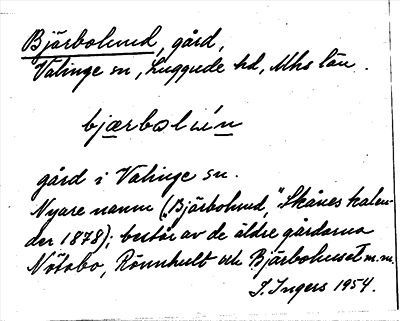 Bjärbolund, gård,
Välinge sn, Luggude hd, Mhs län.
bjærbolún
gård i Välinge sn.
Nyare namn („Bjärbolund," Skånes kalen-
der 1878); består av de äldre gårdarna
Nötabo, Rönnhult och Bjärbohuset m.m.
I. Ingers 1954.